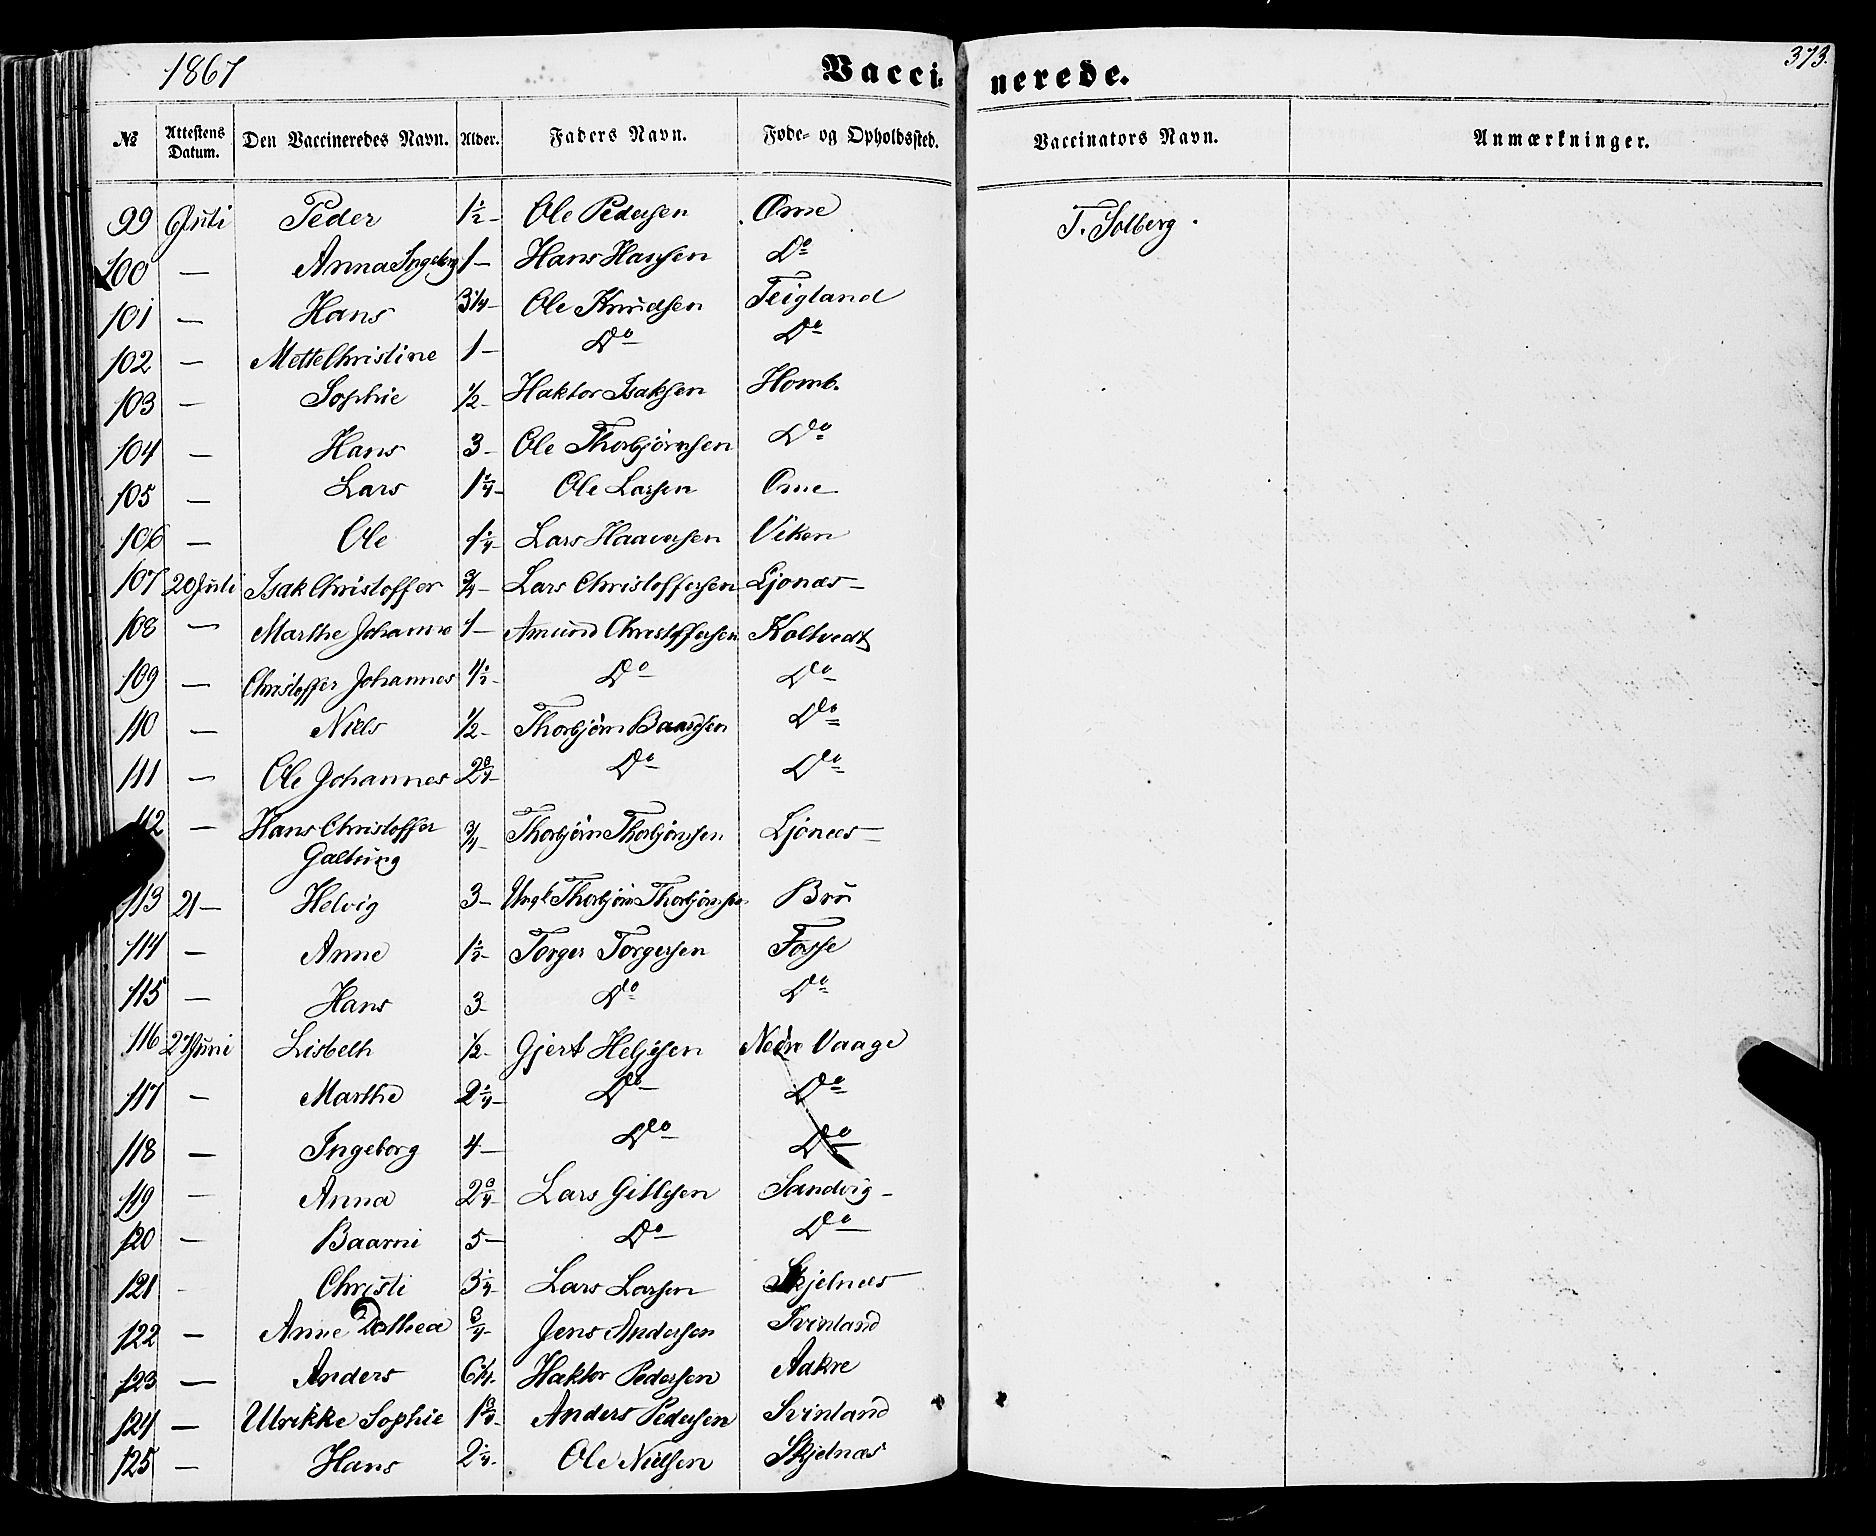 1867
Vaccinerede.
373.
№ Attestens Datum. Den Vaccineredes Navn. Alder. Faders Navn. Føde- og Opholdssted. Vaccinators Navn. Anmærkninger.
99 Juli Peder 1½ Ole Pedersen Ome T. Solberg.
100 — Anna Ingeborg 1 — Hans Hansen Do
101 — Hans 3¼ Ole Knudsen Teigland
102 — Mette Christine 1 — Do Do
103 — Sophie ½ Haktor Isaksen Homb.
104 — Hans 3 — Ole Thorbjørnsen Do
105 — Lars 1¼ Ole Larsen Ome
106 — Ole 1¼ Lars Haaversen Viken
107 20 Juli Isak Christoffer ¾ Lars Christoffersen Ljonæs —
108 — Marthe Johanne 1 — Amund Christoffersen Koltvedt
109 — Christoffer Johannes Do Do
110 — Niels ½ Thorbjørn Baardsen Do
111 — Ole Johannes 2¾ Do Do
112 — Hans Christoffer ¾ Thorbjørn Thorbjørnsen Ljonæs —
Galtung
113 21 — Helvig 3 — Thorbjørn Thorbjørnsen Bru
114 — Anne 1½ Torger Torgersen Fosse
115 — Hans 3 Do Do
116 Juni Lisbeth ½ Gjert Heljesen Nedre Vaage
117 — Marthe 2¼ Do Do
118 — Ingeborg 4 — Do Do
119 — Anna 2¾ Lars Gitlesen Sandvig —
120 — Baarni 5 — Do Do
121 - Christi 3¼ Lars Larsen Skjelnæs
122 — Anne Dothea ¾ Jens Andersen Svinland
123 — Anders 6¼ Haktor Pedersen Aakre
124 — Ulrikke Sophie 1¾ Anders Pedersen Svinland
125 — Hans 2¼ Ole Nielsen Skjelnæs